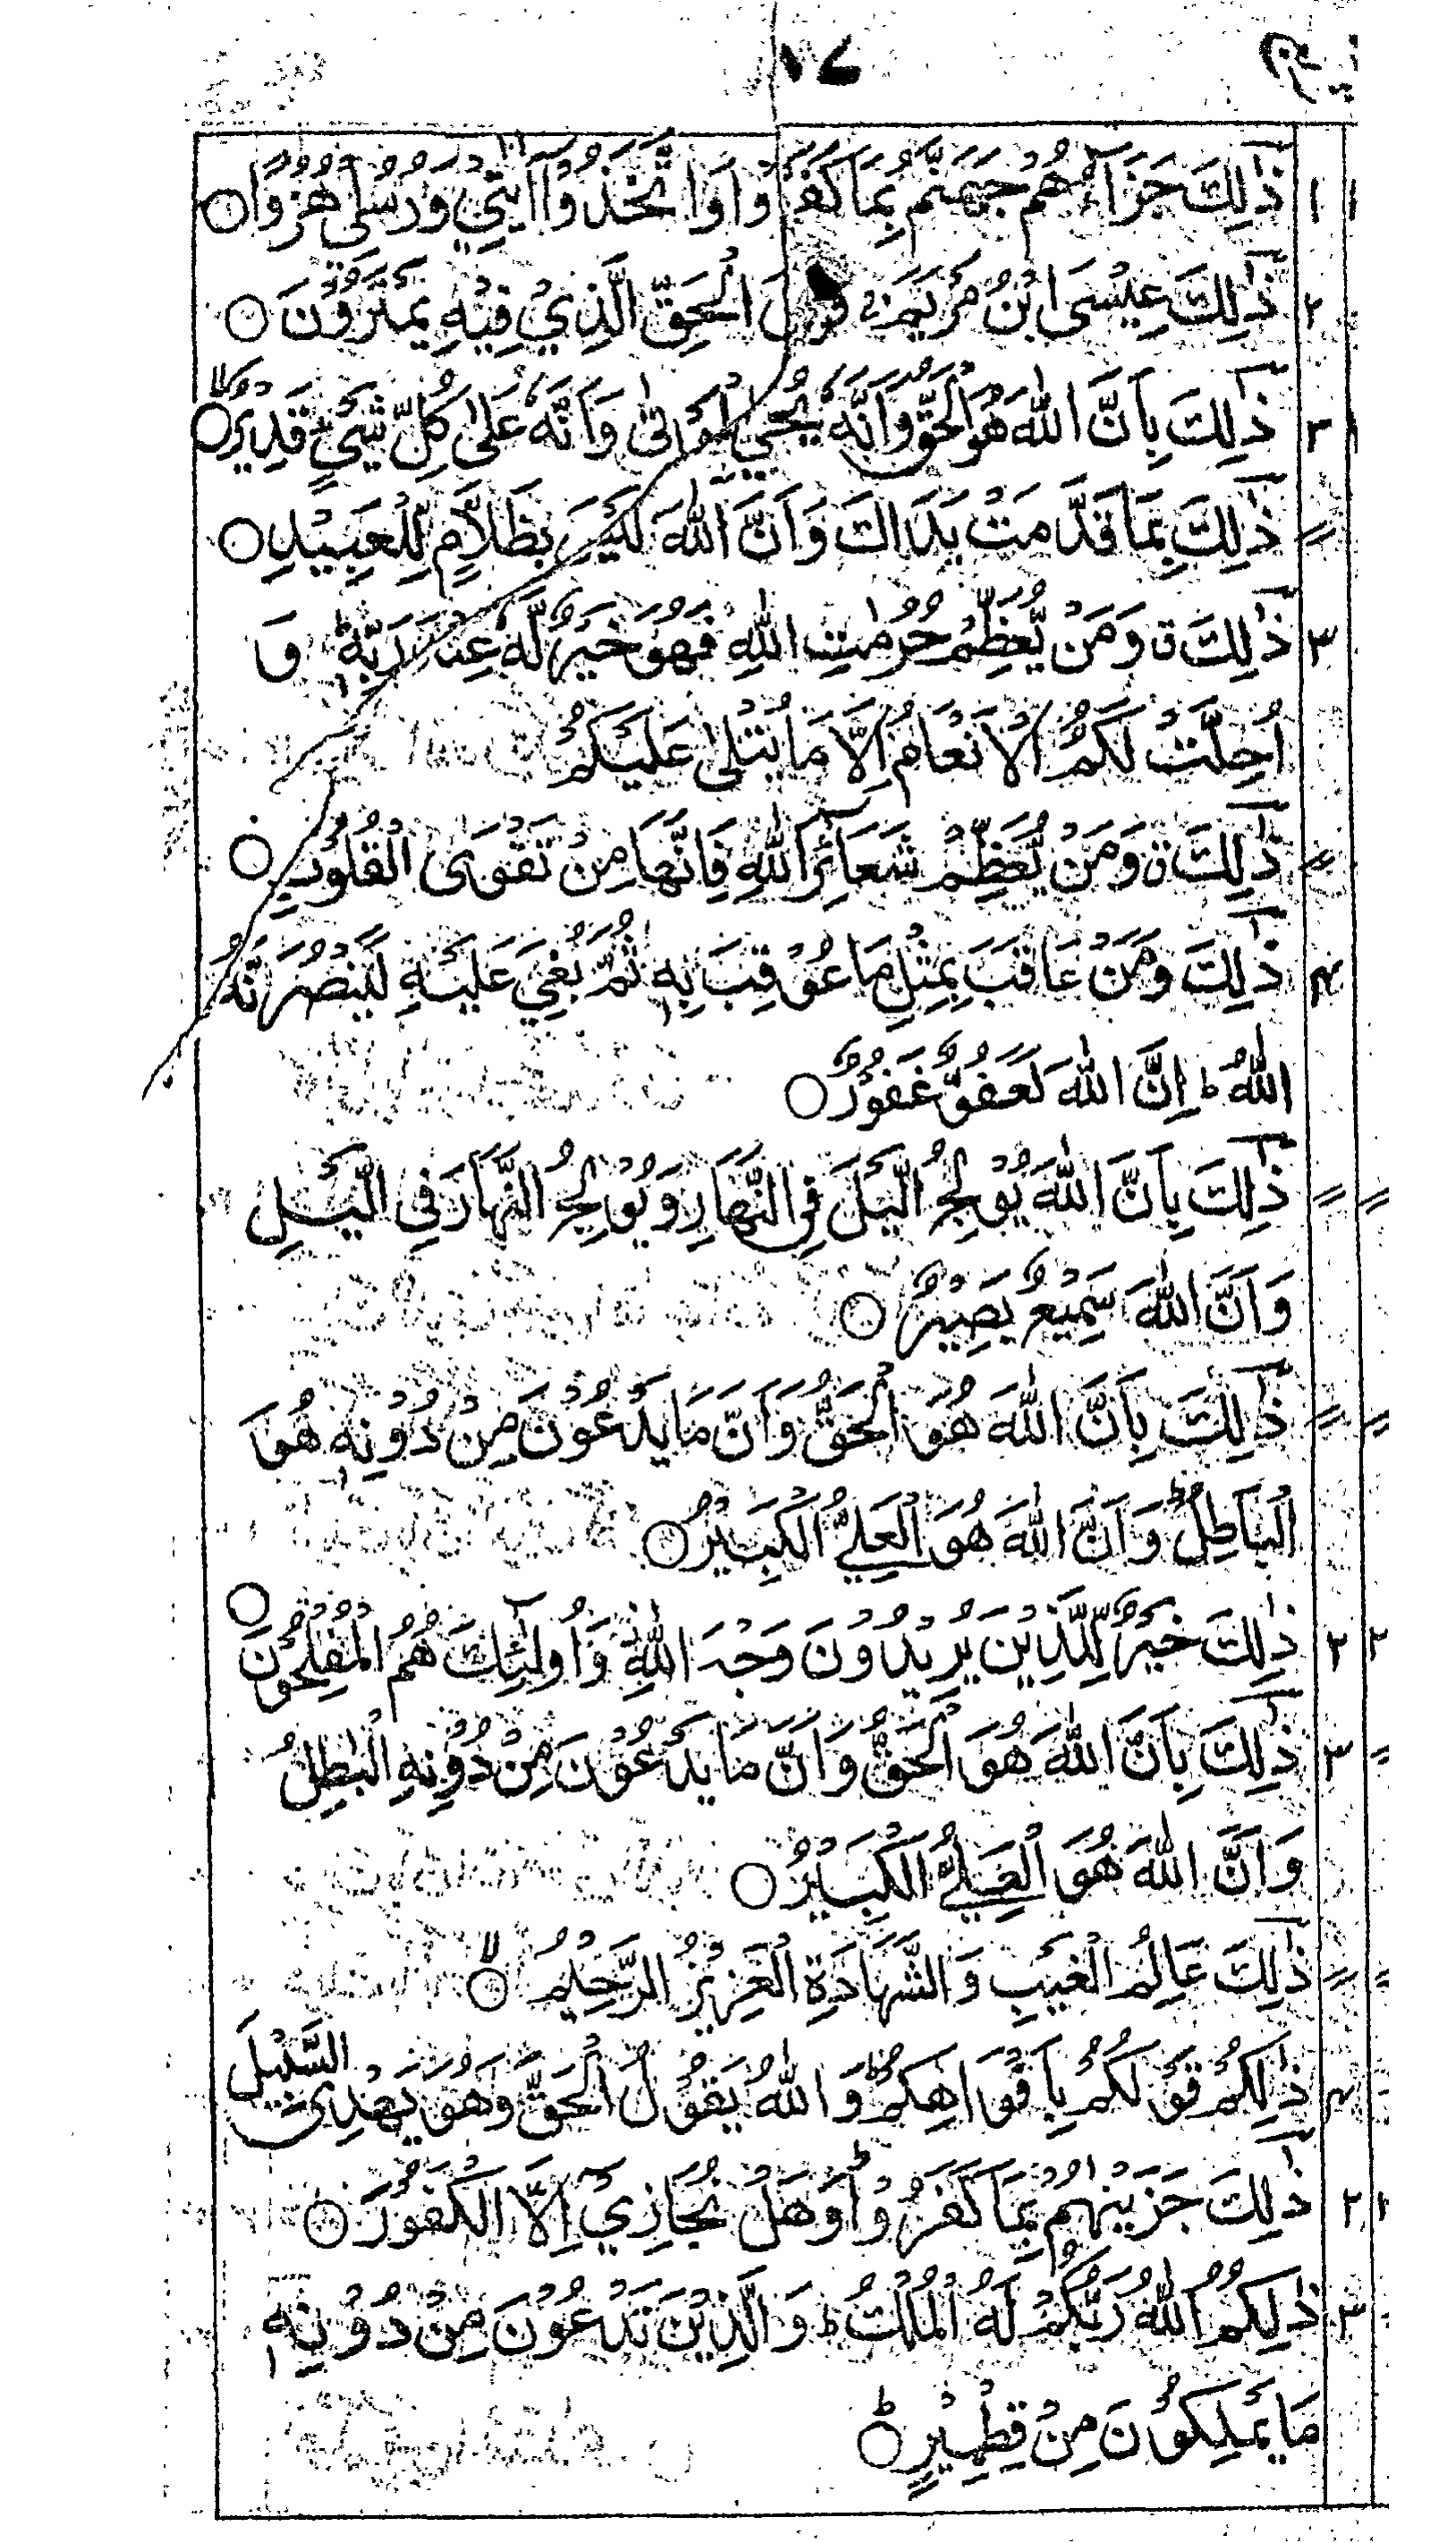 ١٧
ذٰلِكَ جَزَآؤُهُمْ جَهَنَّمُ بِمَا كَفَرُوْا وَاتَّخَذُوْٓا اٰيٰتِيْ وَرُسُلِيْ هُزُوًا ○ ١
ذٰلِكَ عِيْسَى ابْنُ مَرْيَمَ ج قَوْلَ الْحَقِّ الَّذِيْ فِيْهِ يَمْتَرُوْنَ ○ ٢
ذٰلِكَ بِاَنَّ اللّٰهَ هُوَ الْحَقُّ وَاَنَّهٗ يُحْيِ الْمَوْتٰى وَاَنَّهٗ عَلٰى كُلِّ شَيْءٍ قَدِيْرٌ ○ ٣
ذٰلِكَ بِمَا قَدَّمَتْ يَدَاكَ وَاَنَّ اللّٰهَ لَيْسَ بِظَلَّامٍ لِّلْعَبِيْدِ ○
ذٰلِكَ ق وَمَنْ يُّعَظِّمْ حُرُمٰتِ اللّٰهِ فَهُوَ خَيْرٌ لَّهٗ عِنْدَ رَبِّهٖ ط وَ ٣
اُحِلَّتْ لَكُمُ الْاَنْعَامُ اِلَّا مَا يُتْلٰى عَلَيْكُمْ
ذٰلِكَ ق وَمَنْ يُّعَظِّمْ شَعَآئِرَ اللّٰهِ فَاِنَّهَا مِنْ تَقْوَى الْقُلُوْبِ ○
ذٰلِكَ وَمَنْ عَاقَبَ بِمِثْلِ مَا عُوْقِبَ بِهٖ ثُمَّ بُغِيَ عَلَيْهِ لَيَنْصُرَنَّهُ ٤
اللّٰهُ ط اِنَّ اللّٰهَ لَعَفُوٌّ غَفُوْرٌ ○
ذٰلِكَ بِاَنَّ اللّٰهَ يُوْلِجُ الَّيْلَ فِي النَّهَارِ وَيُوْلِجُ النَّهَارَ فِي الَّيْلِ
وَاَنَّ اللّٰهَ سَمِيْعٌ بَصِيْرٌ ○
ذٰلِكَ بِاَنَّ اللّٰهَ هُوَ الْحَقُّ وَاَنَّ مَا يَدْعُوْنَ مِنْ دُوْنِهٖ هُوَ
الْبَاطِلُ وَاَنَّ اللّٰهَ هُوَ الْعَلِيُّ الْكَبِيْرُ ○
ذٰلِكَ خَيْرٌ لِّلَّذِيْنَ يُرِيْدُوْنَ وَجْهَ اللّٰهِ وَاُولٰٓئِكَ هُمُ الْمُفْلِحُوْنَ ○ ٢
ذٰلِكَ بِاَنَّ اللّٰهَ هُوَ الْحَقُّ وَاَنَّ مَا يَدْعُوْنَ مِنْ دُوْنِهِ الْبَاطِلُ ٣
وَاَنَّ اللّٰهَ هُوَ الْعَلِيُّ الْكَبِيْرُ ○
ذٰلِكَ عَالِمُ الْغَيْبِ وَالشَّهَادَةِ الْعَزِيْزُ الرَّحِيْمُ ○
ذٰلِكُمْ قَوْلُكُمْ بِاَفْوَاهِكُمْ وَاللّٰهُ يَقُوْلُ الْحَقَّ وَهُوَ يَهْدِى السَّبِيْلَ ٤
ذٰلِكَ جَزَيْنٰهُمْ بِمَا كَفَرُوْا ط وَهَلْ نُجٰزِيْٓ اِلَّا الْكَفُوْرَ ○ ٢
ذٰلِكُمُ اللّٰهُ رَبُّكُمْ لَهُ الْمُلْكُ ط وَالَّذِيْنَ تَدْعُوْنَ مِنْ دُوْنِهٖ ٣
مَا يَمْلِكُوْنَ مِنْ قِطْمِيْرٍ ط ○